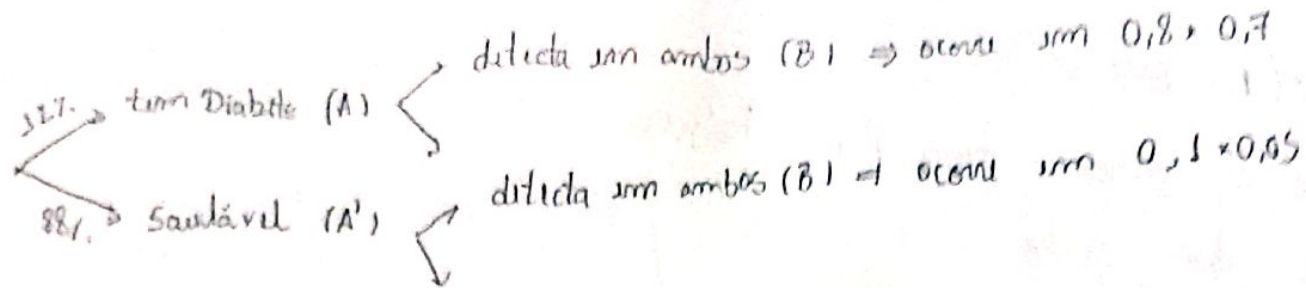 12% tem Diabete (A)
detecta em ambos (B) ⇒ ocorre em 0,8 × 0,7
88% Saudável (A')
detecta em ambos (B) ⇒ ocorre em 0,1 × 0,05